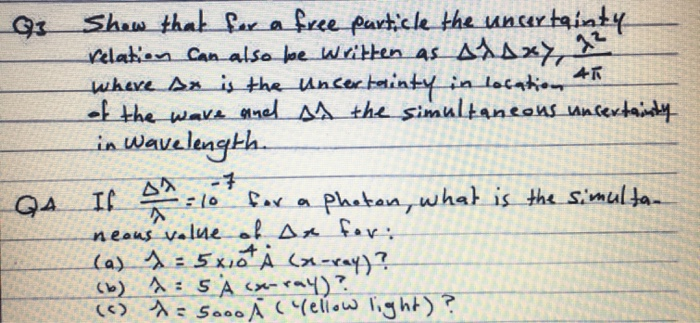 Q3 Show that for a free particle the uncertainty
relation can also be written as ΔλΔx ≥ λ²/4π
where Δx is the uncertainty in location
of the wave and Δλ the simultaneous uncertainty
in wavelength.
Q4 If Δλ/λ = 10⁻⁷ for a photon, what is the simulta-
neous value of Δx for:
(a) λ = 5x10⁻⁴ Å (x-ray)?
(b) λ = 5 Å (x-ray)?
(c) λ = 5000 Å (Yellow light)?